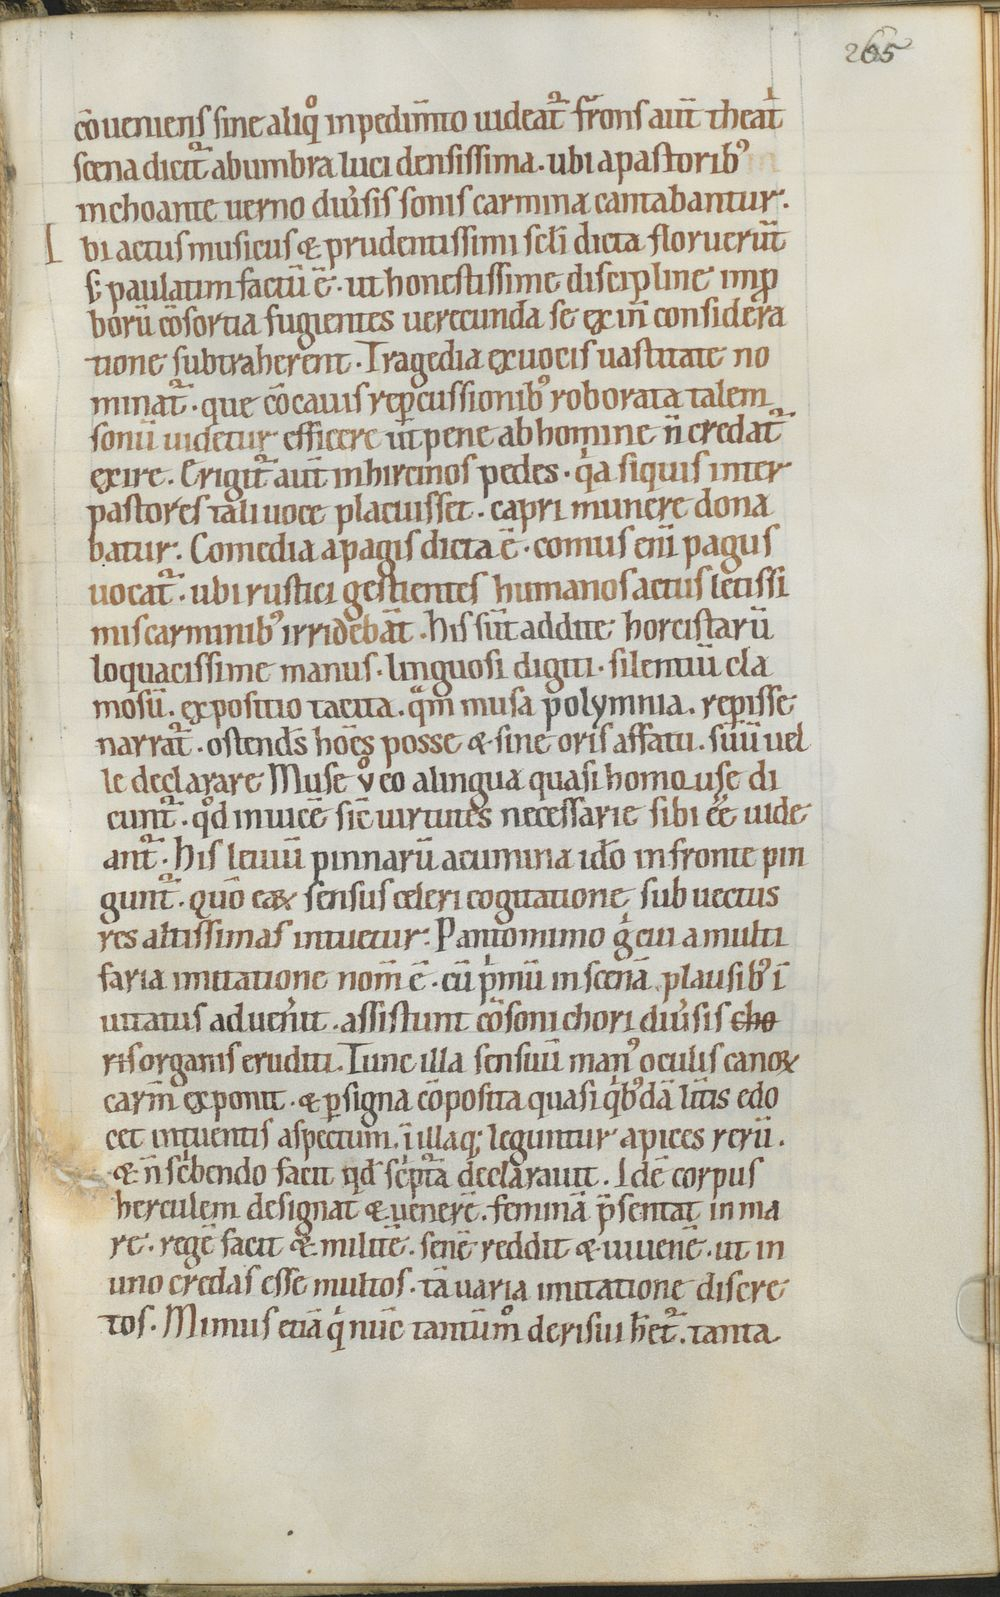 265
cōueniens sine aliqͦ inpedim̄to uideat᷑ frons aut̄ theat͛
scena dicit᷑ abumbra luci densissima. ubi apastorib᷒
inchoante uerno diu͛sis sonis carmina cantabantur.
I bi actus musicus & prudentissimi sc̄li dicta floruerūt
S; paulatim factū ē. ut honestissime discipline imꝓ
borū cōsortia fugientes uerecunda se exin̄ considera
tione subtraherent. Tragedia exuocis uastitate no
minat᷑. que cōcauis reꝑcussionib᷒ roborata talem
sonū uidetur efficere ut pene abhomine n̄ credat᷑
exire. Erigit᷑ aut̄ inhircinos pedes. qͥa siquis inter
pastores tali uoce placuisset. capri munere dona
batur. Comedia apagis dicta ē. comus eni͞ pagus
uocat᷑. ubi rustici gestientes humanos actus letissi
mis carminib᷒ irridebāt. his sūt addite horcistarū
loquacissime manus. linguosi digiti. silentiū cla
mosū. expositio tacita. qͣm musa polymnia. repisse
narrat᷑. ostendēs hōēs posse & sine oris affatu. suū uel
le declarare Muse v̊ eo alingua quasi homouse di
cunt᷑. qͦd inuicē sic̄ uirtutes necessarie sibi eē uide
ant᷑. his leuiū pinnarū acumina idō infronte pin
gunt᷑. quō eaꝝ sensus celeri cogitatione sub uectus
res altissimas intuetur. Pantomimo gͥ cui amulti
faria imitatione nom̄ ē. cū pͥmū inscenā plausib᷒ ī
uitatus aduen͛it. assistunt cōsoni chori diu͛sis cho
ris organis eruditi. Tunc illa sensuū man᷒ oculis canoꝝ
carm̄ exponit. & ꝑsigna cōposita quasi qͥb᷒dā lit̄is edo
cet intuentis aspectum. ī illaq; leguntur apices rerū.
& n̄ sc͛bendo facit qd̄ sc͛pta declarauit. Idē corpus
herculem designat & uenerē. feminā p̄sentat inma
re. regē facit & militē. senē reddit & iuuenē. ut in
uno credas esse multos. tā uaria imitatione discre
tos. Mimus etiā qͥ nūc tantūm̊ derisui het᷑. tanta